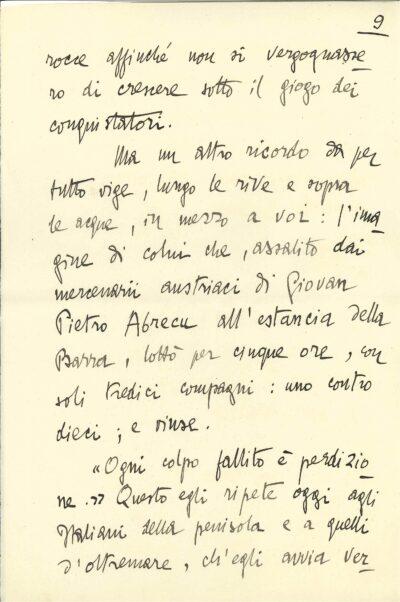 9
rocce affinché non si vergognasse
ro di crescere sotto il giogo dei
conquistatori.
Ma un altro ricordo da per
tutto vige, lungo le rive e sopra
le acque, in mezzo a voi: l'ima
gine di colui che, assalito dai
mercenarii austriaci di Giovan
Pietro Abrecu all'estancia della
Barra, lottò per cinque ore, con
soli tredici compagni: uno contro
dieci; e vinse.
«Ogni colpo fallito è perdizio
ne.» Questo egli ripete oggi agli
Italiani della penisola e a quelli
d'oltremare, ch'egli avvia ver